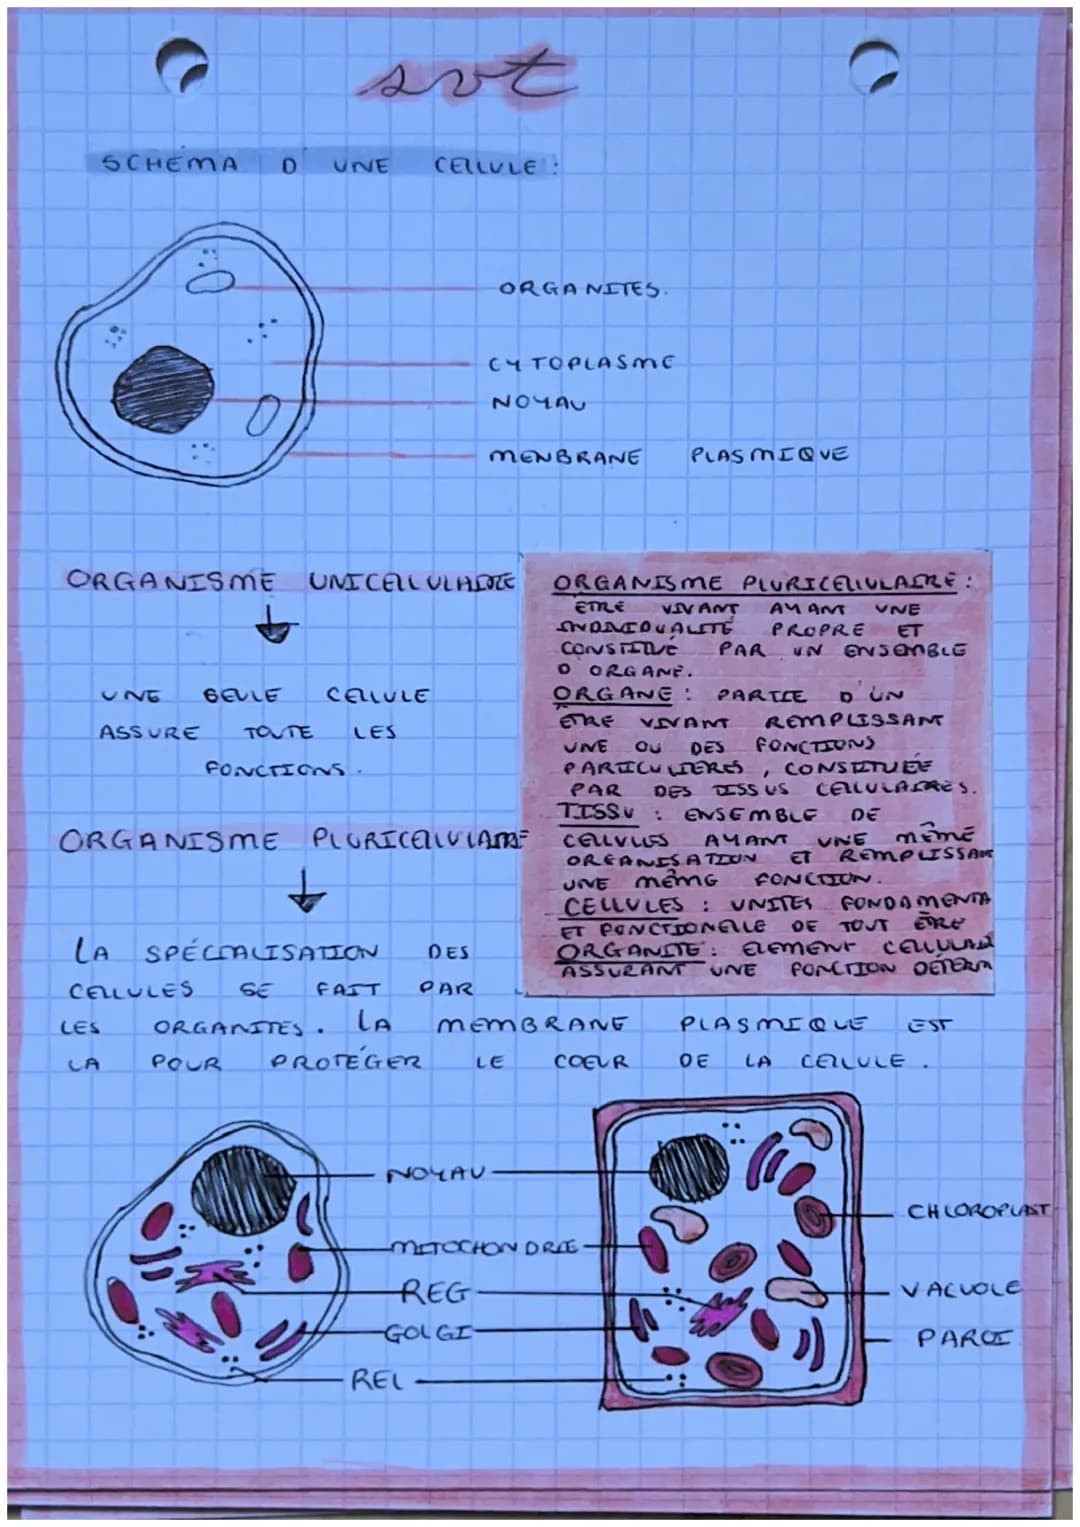 svt
SCHÉMA D'UNE CELLULE :
ORGANITES.
CYTOPLASME
NOYAU
MENBRANE PLASMIQUE
ORGANISME UNICELLULAIRE
UNE SEULE CELLULE
ASSURE TOUTE LES
FONCTIONS.
ORGANISME PLURICELLULAIRE
ORGANISME PLURICELLULAIRE :
ÊTRE VIVANT AYANT UNE
INDIVIDUALITÉ PROPRE ET
CONSTITUÉ PAR UN ENSEMBLE
D ORGANE.
ORGANE : PARTIE D'UN
ÊTRE VIVANT REMPLISSANT
UNE OU DES FONCTIONS
PARTICULIERES, CONSTITUÉE
PAR DES TISSUS CELLULAIRES.
TISSU : ENSEMBLE DE
CELLULES AYANT UNE MÊME
ORGANISATION ET REMPLISSANT
UNE MÊME FONCTION.
CELLULES : UNITES FONDAMENTA
ET FONCTIONELLE DE TOUT ÊTRE
ORGANITE : ELEMENT CELLULAI
ASSURANT UNE FONCTION DÉTERM
LA SPÉCIALISATION DES
CELLULES SE FAIT PAR
LES ORGANITES. LA MEMBRANE PLASMIQUE EST
LA POUR PROTÉGER LE COEUR DE LA CELLULE.
NOYAU
CHLOROPLAST
MITOCHONDRIE
REG
VACUOLE
GOLGI
PAROI
REL